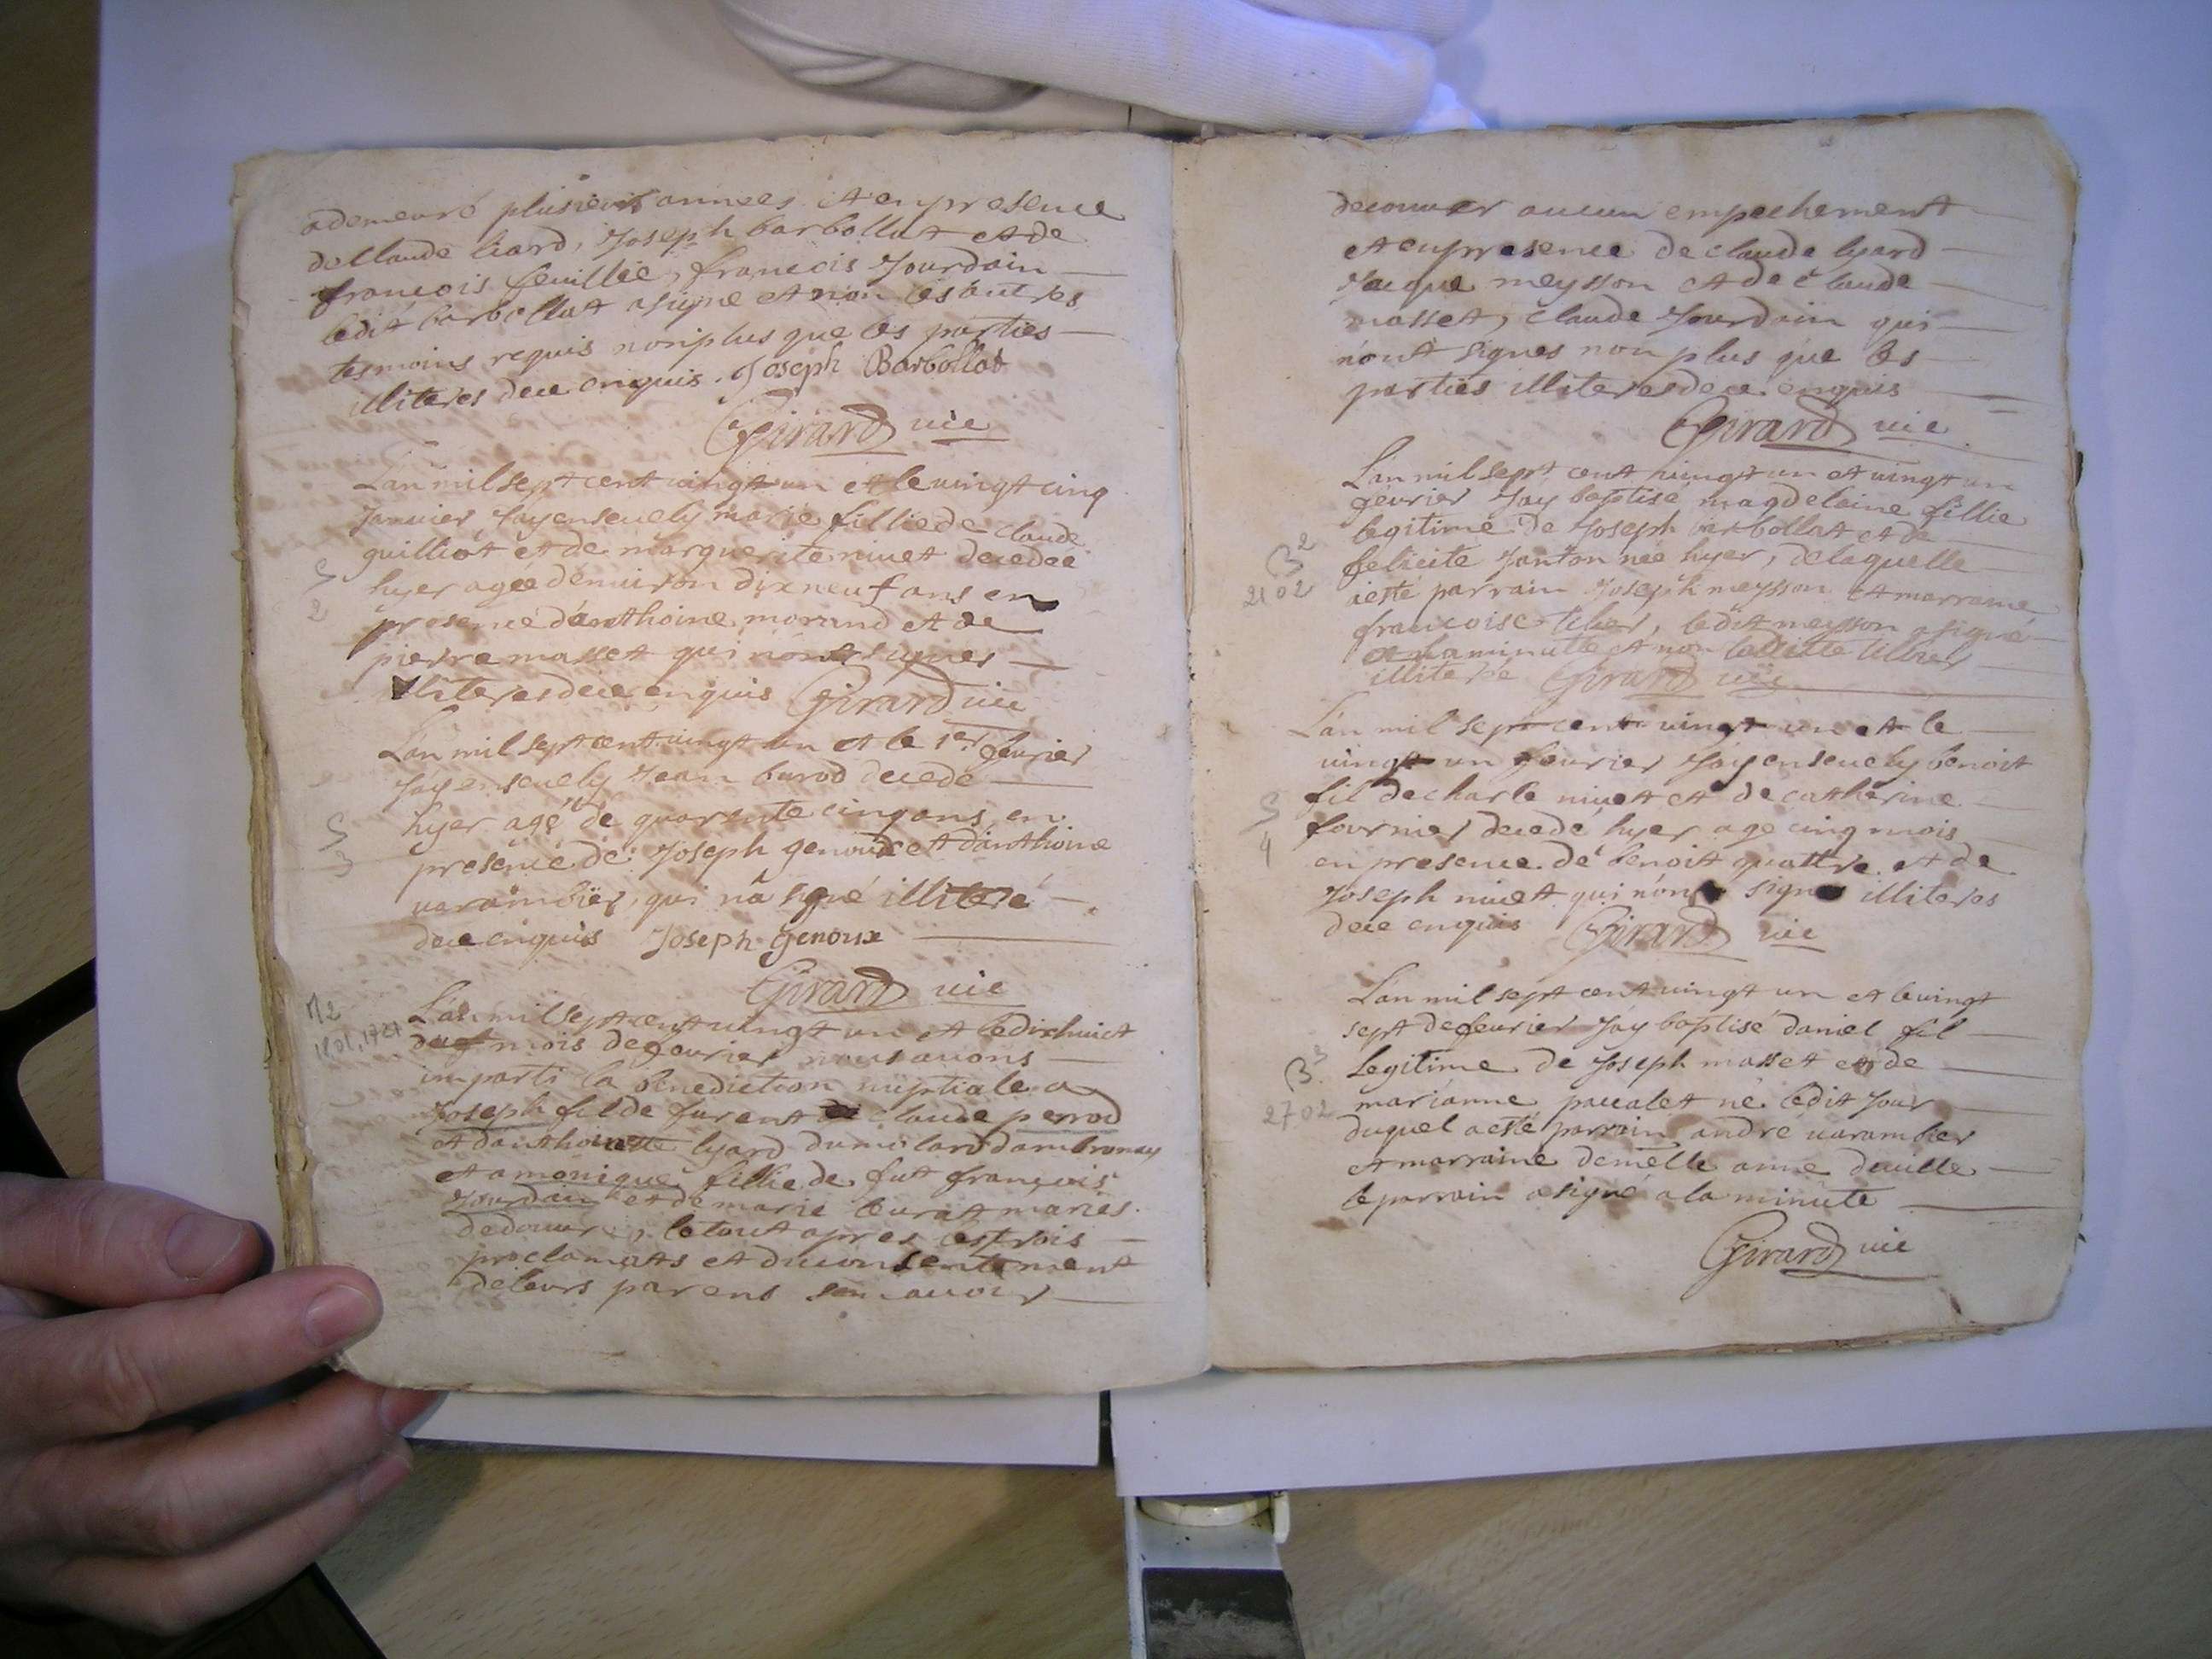 ademeuré plusieurs annees et en presence
de Claude liard, Joseph barbollat et de
francois feuillée, francois Jourdain
ledit barbollat a signe et non les autres
tesmoins requis nonplus que les parties
illiteres dece enquis. Joseph Barbollat
Girard vic
L'an mil sept cent vingt un et le vingt cinq
Janvier Jay ensevely marie fillie de Claude
guilliot et de marguerite nivet decedée
S
2
hyer agée d'environ dix neuf ans en
presence d'anthoine morand et de
pierre masset qui n'ont signes
illiteres dece enquis Girard vic
L'an mil sept cent vingt un et le 1er fevrier
Jay ensevely Jean burod decede
S
3
hyer agé de quarente cinq ans en
presence de Joseph genoux et d'anthoine
varambier, qui n'a signé illiteré
dece enquis Joseph Genoux
Girard vic
M2
18.01.1721
L'an mil sept cent vingt un et le dixhuict
du mois de fevrier nous avons
imparti la benediction nuptiale a
Joseph fil de furent Claude perrod
et d'anthoinette lyard du milard dambronay
et a monique fillie de fut françois
Jourdain et de marie leurat maries
de douvre, le tout apres les trois
proclamats et du consentement
de leurs parens sen avoir
decouver aucun empechement
et en presence de claude lyard
Jacque meysson et de claude
masset, claude Jourdain qui
n'ont signes non plus que les
parties illiteres dece enquis
Girard vic
L'an mil sept cent vingt un et vingt un
fevrier Jay baptisé magdelaine fillie
legitime de Joseph barbollat et de
B2
21 02
felicite Janton née hyer, de laquelle
a esté parrain Joseph meysson et marraine
francoise tiller, ledit meysson a signé
a la minutte et non laditte tiller
illiterée Girard vic
L'an mil sept cent vingt un et le
vingt un fevrier Jay ensevely benoit
fil de charle nivet et de catherine
S
4
fournier decedé hyer age cinq mois
en presence de benoit quattre et de
Joseph nivet qui n'ont signes illiteres
dece enquis Girard vic
L'an mil sept cent vingt un et le vingt
sept de fevrier Jay baptisé daniel fil
B3
27.02
legitime de Joseph masset et de
marianne paccalet né ledit Jour
duquel a esté parrain andré varambier
et marraine demelle anne deville
le parrain a signé a la minute
Girard vic